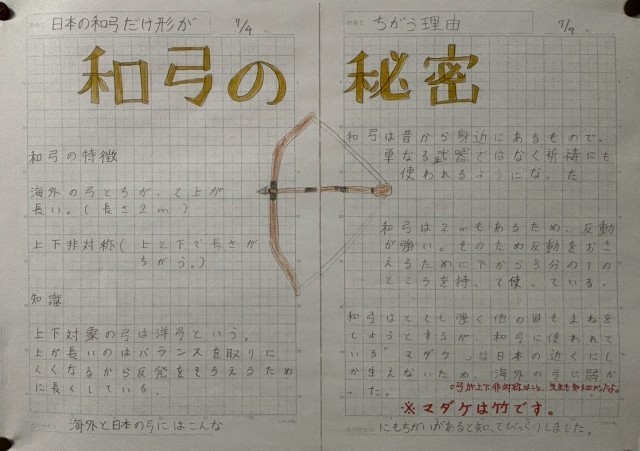 日本の和弓だけ形が 7/4
ちがう理由 7/4
和弓の秘密
和弓の特徴
海外の弓とちがって上が
長い。(長さ2m)
上下非対称(上と下で長さが
ちがう。)
知識
上下対象の弓は洋弓という。
上が長いのはバランスを取りに
くくなるから反発をそうえるため
に長くしている。
海外と日本の弓にはこんな
和弓は昔から身近にあるもので、
単なる武器ではなく祈祷にも
使われるようになった
和弓は2mもあるため、反動
が強い。そのため反動をおさ
えるために下から3分の1の
ところを持って使っている。
和弓はとても強く他の国もまねを
しようとするが、和弓に使われて
いる"マダケ"は日本の近くにし
か生えないため、海外の弓に
った。
※マダケは竹です。
にもちがいがあると知ってびっくりしました。